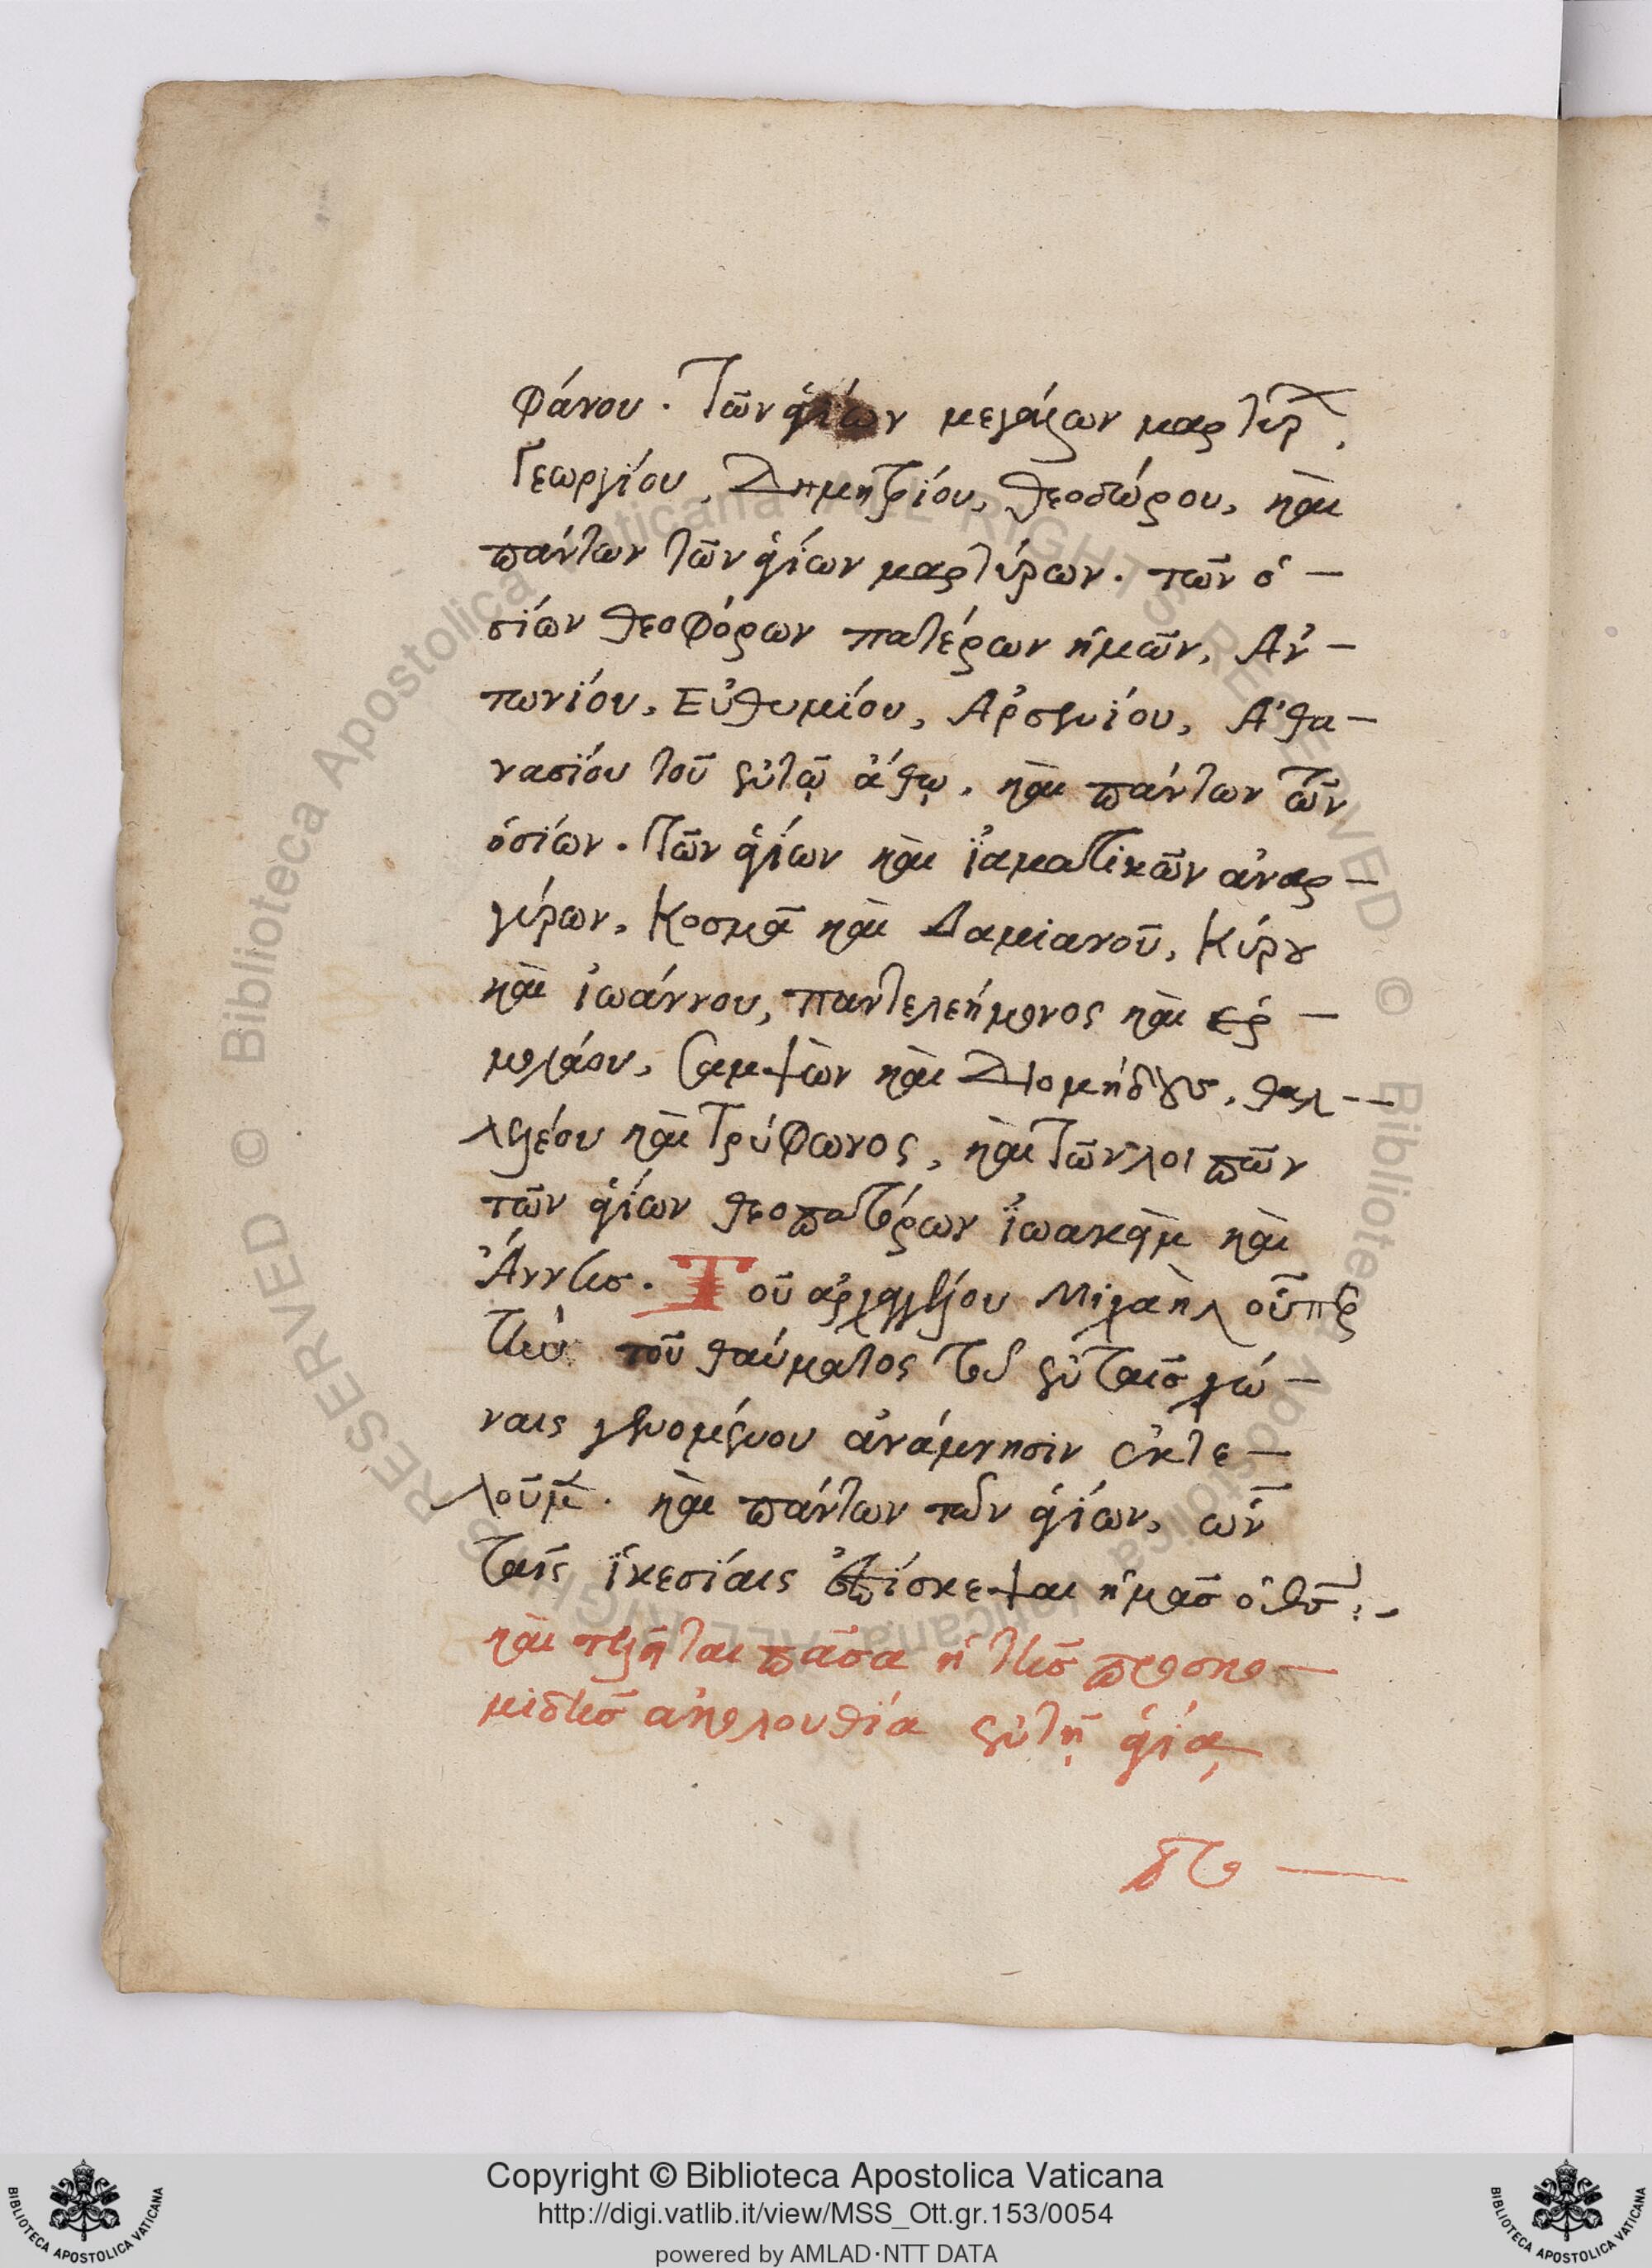 φάνου. Τῶν ἁγίων μεγάλων μαρτύρ,
Γεωργίου, Δημητρίου, Θεοδώρου, καὶ
πάντων τῶν ἁγίων μαρτύρων. τῶν ὁ-
σίων θεοφόρων πατέρων ἡμῶν, Ἀν-
τωνίου, Εὐθυμίου, Ἀρσενίου, Ἀθα-
νασίου τοῦ ἐν τῷ ἄθῳ, καὶ πάντων τῶν
ὁσίων. Τῶν ἁγίων καὶ ἰαματικῶν ἀναρ-
γύρων, Κοσμᾶ καὶ Δαμιανοῦ, Κύρου
καὶ Ἰωάννου, παντελεήμονος καὶ ἑρ-
μολάου, Σαμψὼν καὶ Διομήδους, θαλ-
λελέου καὶ Τρύφωνος, καὶ τῶν λοιπῶν
τῶν ἁγίων θεοπατέρων ἰωακεὶμ καὶ
Ἄννης. Τοῦ ἀρχαγγέλου Μιχαὴλ οὗπερ
τὴν τοῦ θαύματος τοῦ ἐν ταῖς χώ-
ναις γενομένου ἀνάμνησιν ἐκτε-
λοῦμεν. καὶ πάντων τῶν ἁγίων, ὧν
ταῖς ἱκεσίαις ἐπίσκεψαι ἡμᾶς ὁ θς:-
καὶ τελεῖται πᾶσα ἡ τῆς προσκο-
μιδῆς ἀκολουθία ἐν τῇ ἁγίᾳ
Copyright © Biblioteca Apostolica Vaticana
http://digi.vatlib.it/view/MSS_Ott.gr.153/0054
powered by AMLAD·NTT DATA